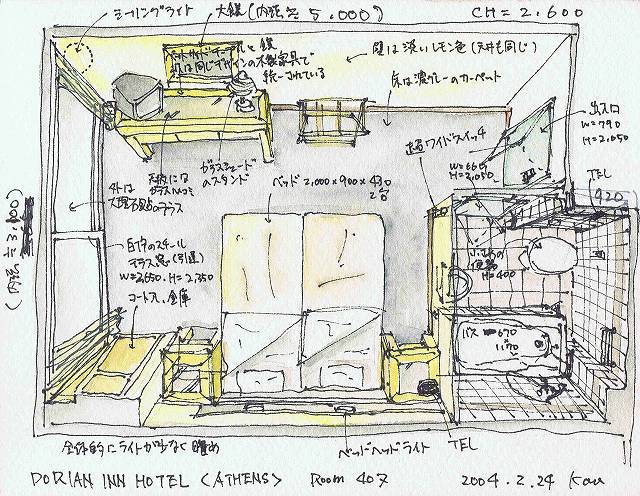 シーリングライト
大鏡
(内法≒5,000)
CH=2,600
鏡
机は同じデザインの木製家具で
統一されている
壁は淡いレモン色(天井も同じ)
床は濃グレーのカーペット
出入口
W=790
H=2,050
超ワイドスイッチ
W=660
H=2,050
TEL
420
ガラスシェード
のスタンド
ベッド 2,000×900×430
2台
外は
大理石貼のテラス
白色のスチール
テラス窓(引違)
W=2,650.H=2,350
コート入、金庫
便器
H=400
バス
670
1170
全体的にライトが少なく暗め
ベッドヘッドライト
TEL
DORIAN INN HOTEL <ATHENS>
Room 407
2004.2.24 Kau